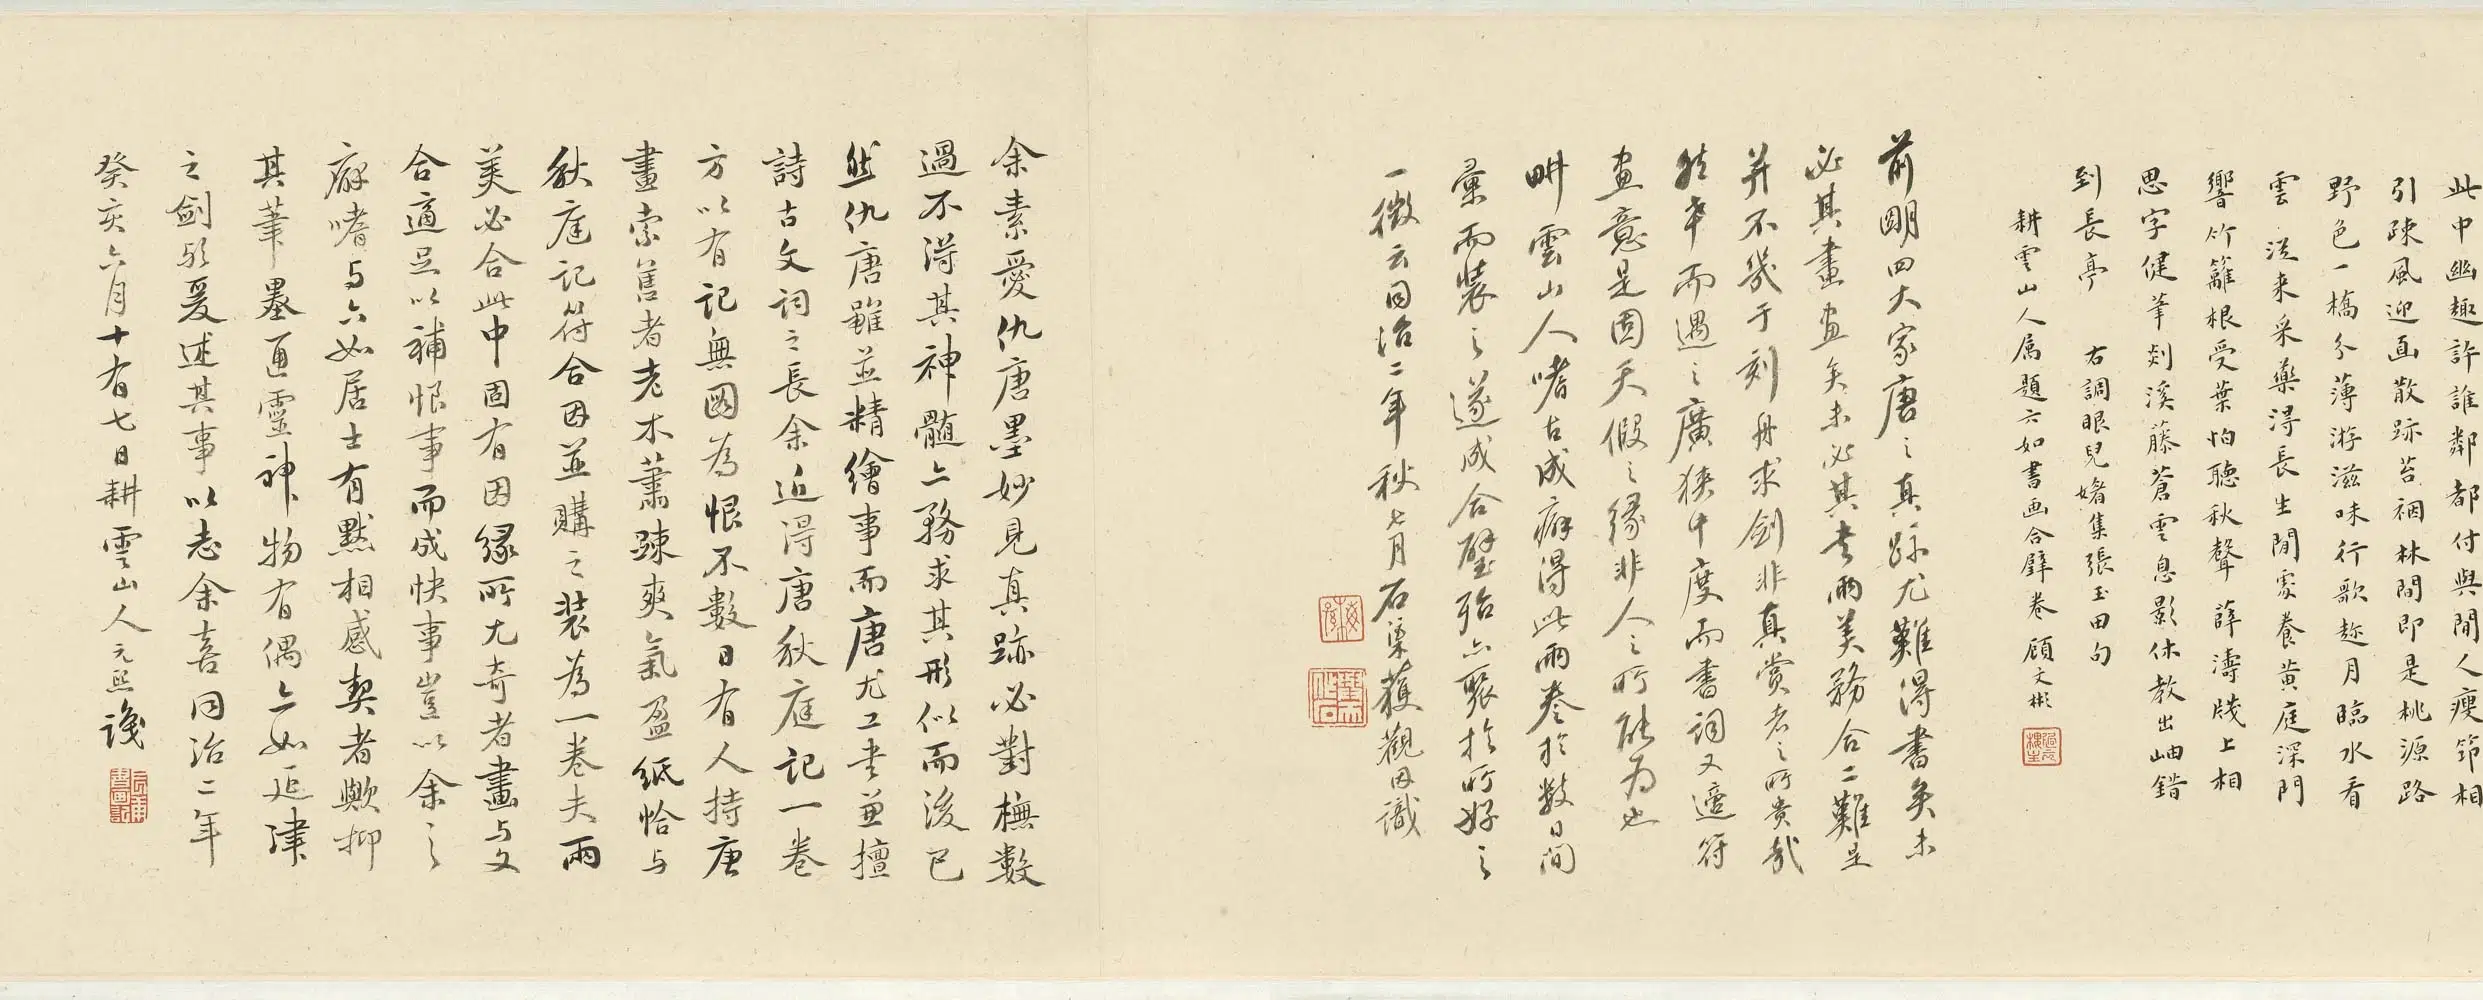 此中幽趣許誰鄰都付與閒人瘦笻相
引疎風迎面散跡苔裀林間即是桃源路
野色一橋分薄游滋味行歌趁月臨水看
雲 從来采藥得長生閒處養黃庭深門
響竹籬根受葉怕聽秋聲 薛濤牋上相
思字健筆剡溪藤蒼雲息影休教出岫錯
到長亭 右調眼兒媚集張玉田句
耕雲山人属題六如書画合璧卷 顧文彬
前明四大家唐之真跡尤難得書矣未
必其畫画矣未必其書兩美務合二難是
并不幾于刻舟求劍非真賞者之所貴哉
然卒而遇之廣狹中度而書詞又適符
画意是固天假之緣非人之所能为也
畊雲山人嗜古成癖得此兩卷於數日間
彙而裝之遂成合璧殆亦聚於所好之
一徵云同治二年秋七月石渠獲觀因識
余素愛仇唐墨妙見真跡必對橅數
過不得其神髓亦務求其形似而後已
然仇唐雖並精繪事而唐尤工書兼擅
詩古文詞之長余近得唐秋庭記一卷
方以有記無圖為恨不數日有人持唐
畫索舊者老木蕭踈爽氣盈紙恰与
秋庭記符合因並購之裝為一卷夫兩
美必合此中固有因緣所尤奇者畫与文
合適足以補恨事而成快事豈以余之
癖嗜与六如居士有默相感契者歟抑
其筆墨通靈神物有偶亦如延津
之劍歟爰述其事以志余喜同治二年
癸亥六月十有七日耕雲山人元熙識